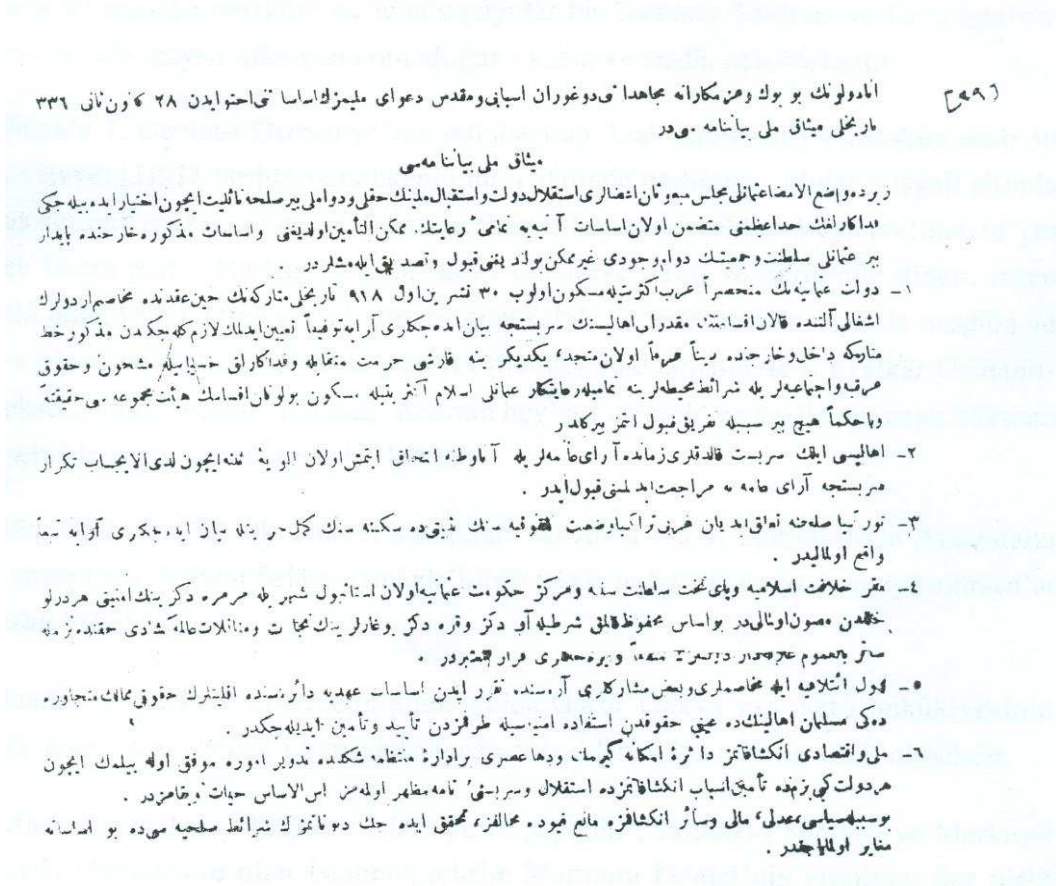 [٩٩] انادولونك بو بویوك وهنرمكارانه مجاهداتی دوغوران اسبابی ومقدس دعوای ملیمزك اساساتنی احتوا یدن ٢٨ كانون ثانی ٣٣٦
تاریخلی میثاق ملی بیاننامه سی در
میثاق ملی بیاننامه سی
زیرده واضع الامضا عثمانلی مجلس مبعوثان اعضالری استقلال دولت واستقبال ملتك حقلی ودواملی بر صلحه نائلیت ایچون اختیار ایده بیله جكی
فداكارلغك حد اعظمنی متضمن اولان اساسات آتیه یه تمامئ رعایتك ممكن التأمین اولدیغنی واساسات مذكوره خارجنده پایدار
بر عثمانلی سلطنت وجمعیتك دوام وجودی غیر ممكن بولندیغنی قبول وتصدیق ایله مشلردر
١- دولت عثمانیه نك منحصراً عرب اكثریتیله مسكون اولوب ٣٠ تشرین اول ٩١٨ تاریخلی متاركه نك حین عقدنده مخاصم اردولرك
اشغالی آلتنده قالان اقسامنك مقدراتی اهالیسنك سربستجه بیان ایده جكلری آرایه توفیقاً تعیین ایدیلمك لازم كله جكدن مذكور خط
متاركه داخل وخارجنده دیناً عرقاً اولان متحد یكدیگرینه قارشی حرمت متقابله وفداكارلق حسیاتیله مشحون وحقوق
عرقیه واجتماعیه لریله شرائط محیطیه لرینه تمامیله رعایتكار عثمانلی اسلام اكثریتیله مسكون بولونان اقسامك هیئت مجموعه سی حقیقةً
ویا حكماً هیچ بر سببله تفریق قبول ایتمز بر كلدر
٢- اهالیسی ایلك سربست قالدقلری زمانده آرای عامه لریله آناوطنه التحاق ایتمش اولان الویه ثلثه ایچون لدی الایجاب تكرار
سربستجه آرای عامه یه مراجعت ایدلمسنی قبول ایدر .
٣- توركیا صلحنه تعلیق ایدیلن غربی تراكیا وضعیت حقوقیه سنك تثبیتی ده سكنه سنك كمال حریتله بیان ایده جكلری آرایه تبعاً
واقع اولمالیدر
٤- مقر خلافت اسلامیه وپای تخت سلطنت سنیه ومركز حكومت عثمانیه اولان استانبول شهریله مرمره دكزینك امنیتی هر درلو
خللدن مصون اولمالیدر بو اساس محفوظ قالمق شرطیله آق دكز وقره دكز بوغازلرینك تجارت ومناقلات عالمه كشادی حقنده بزمله
سائر بالعموم دولتلرك متفقاً ویره جكلری قرار معتبردر .
٥- دول ائتلافیه ایله مخاصملری وبعض مشاركلری آره سنده تقرر ایدن اساسات عهدیه دائره سنده اقلیتلرك حقوقی ممالك متجاوره
ده كی مسلمان اهالینك ده عینی حقوقدن استفاده لری امنیه سیله طرفمزدن تأیید وتأمین ایدیله جكدر .
٦- ملی واقتصادی انكشافاتمز دائره امكانه كیرمك ودها عصری بر اداره منتظمه شكلنده تدویر اموره موفق اوله بیلمك ایچون
هر دولت كبی بزمده تأمین اسباب انكشافاتمزده استقلال وسربستئ تامه مظهر اولمه مز اس الاساس حیات وبقامزدر .
بو سببله سیاسی عدلی مالی وسائر انكشافمزه مانع قیوده مخالفز تحقق ایده جك دیونمزك شرائط تصفیه سی ده بو اساسلره
مغایر اولمایاجقدر .